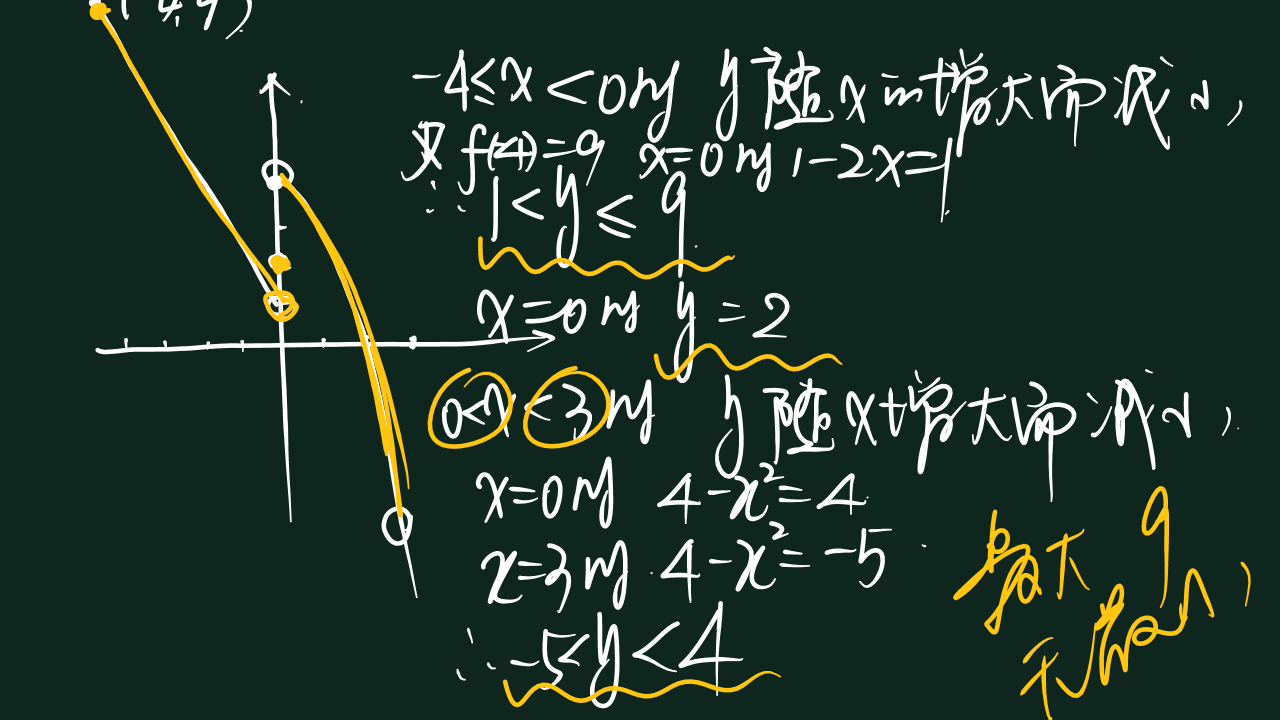 -4≤x<0时 y随x的增大而减小,
又 f(-4)=9 x=0时 1-2x=1
∴ 1<y≤9
x=0时 y=2
0<x<3时 y随x增大而减小,
x=0时 4-x²=4
x=3时 4-x²=-5
∴ -5<y<4
最大 9
无最小